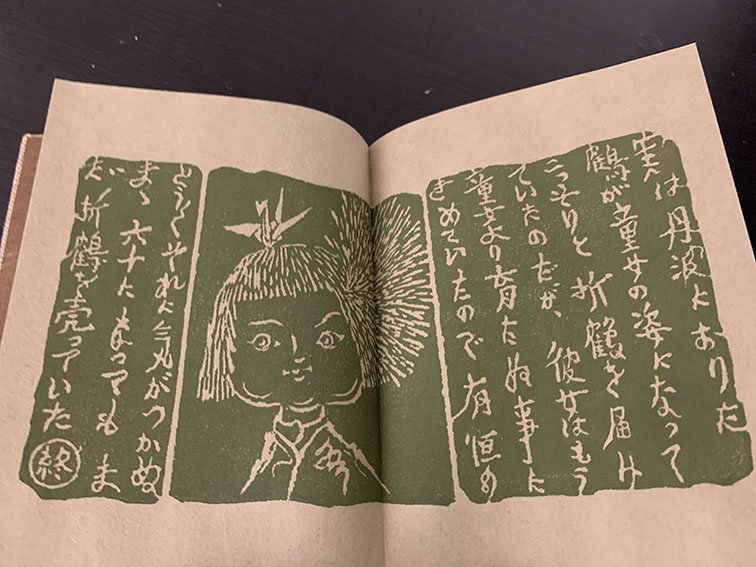 実は丹波におりた
鶴が童女の姿になって
こっそりと折鶴を届け
ていたのだが、彼女はもう
童女より育たぬ事に
きめていたので有恒め
とうとうそれに気がつかぬ
まゝ六十になってもま
だ折鶴を売っていた
終